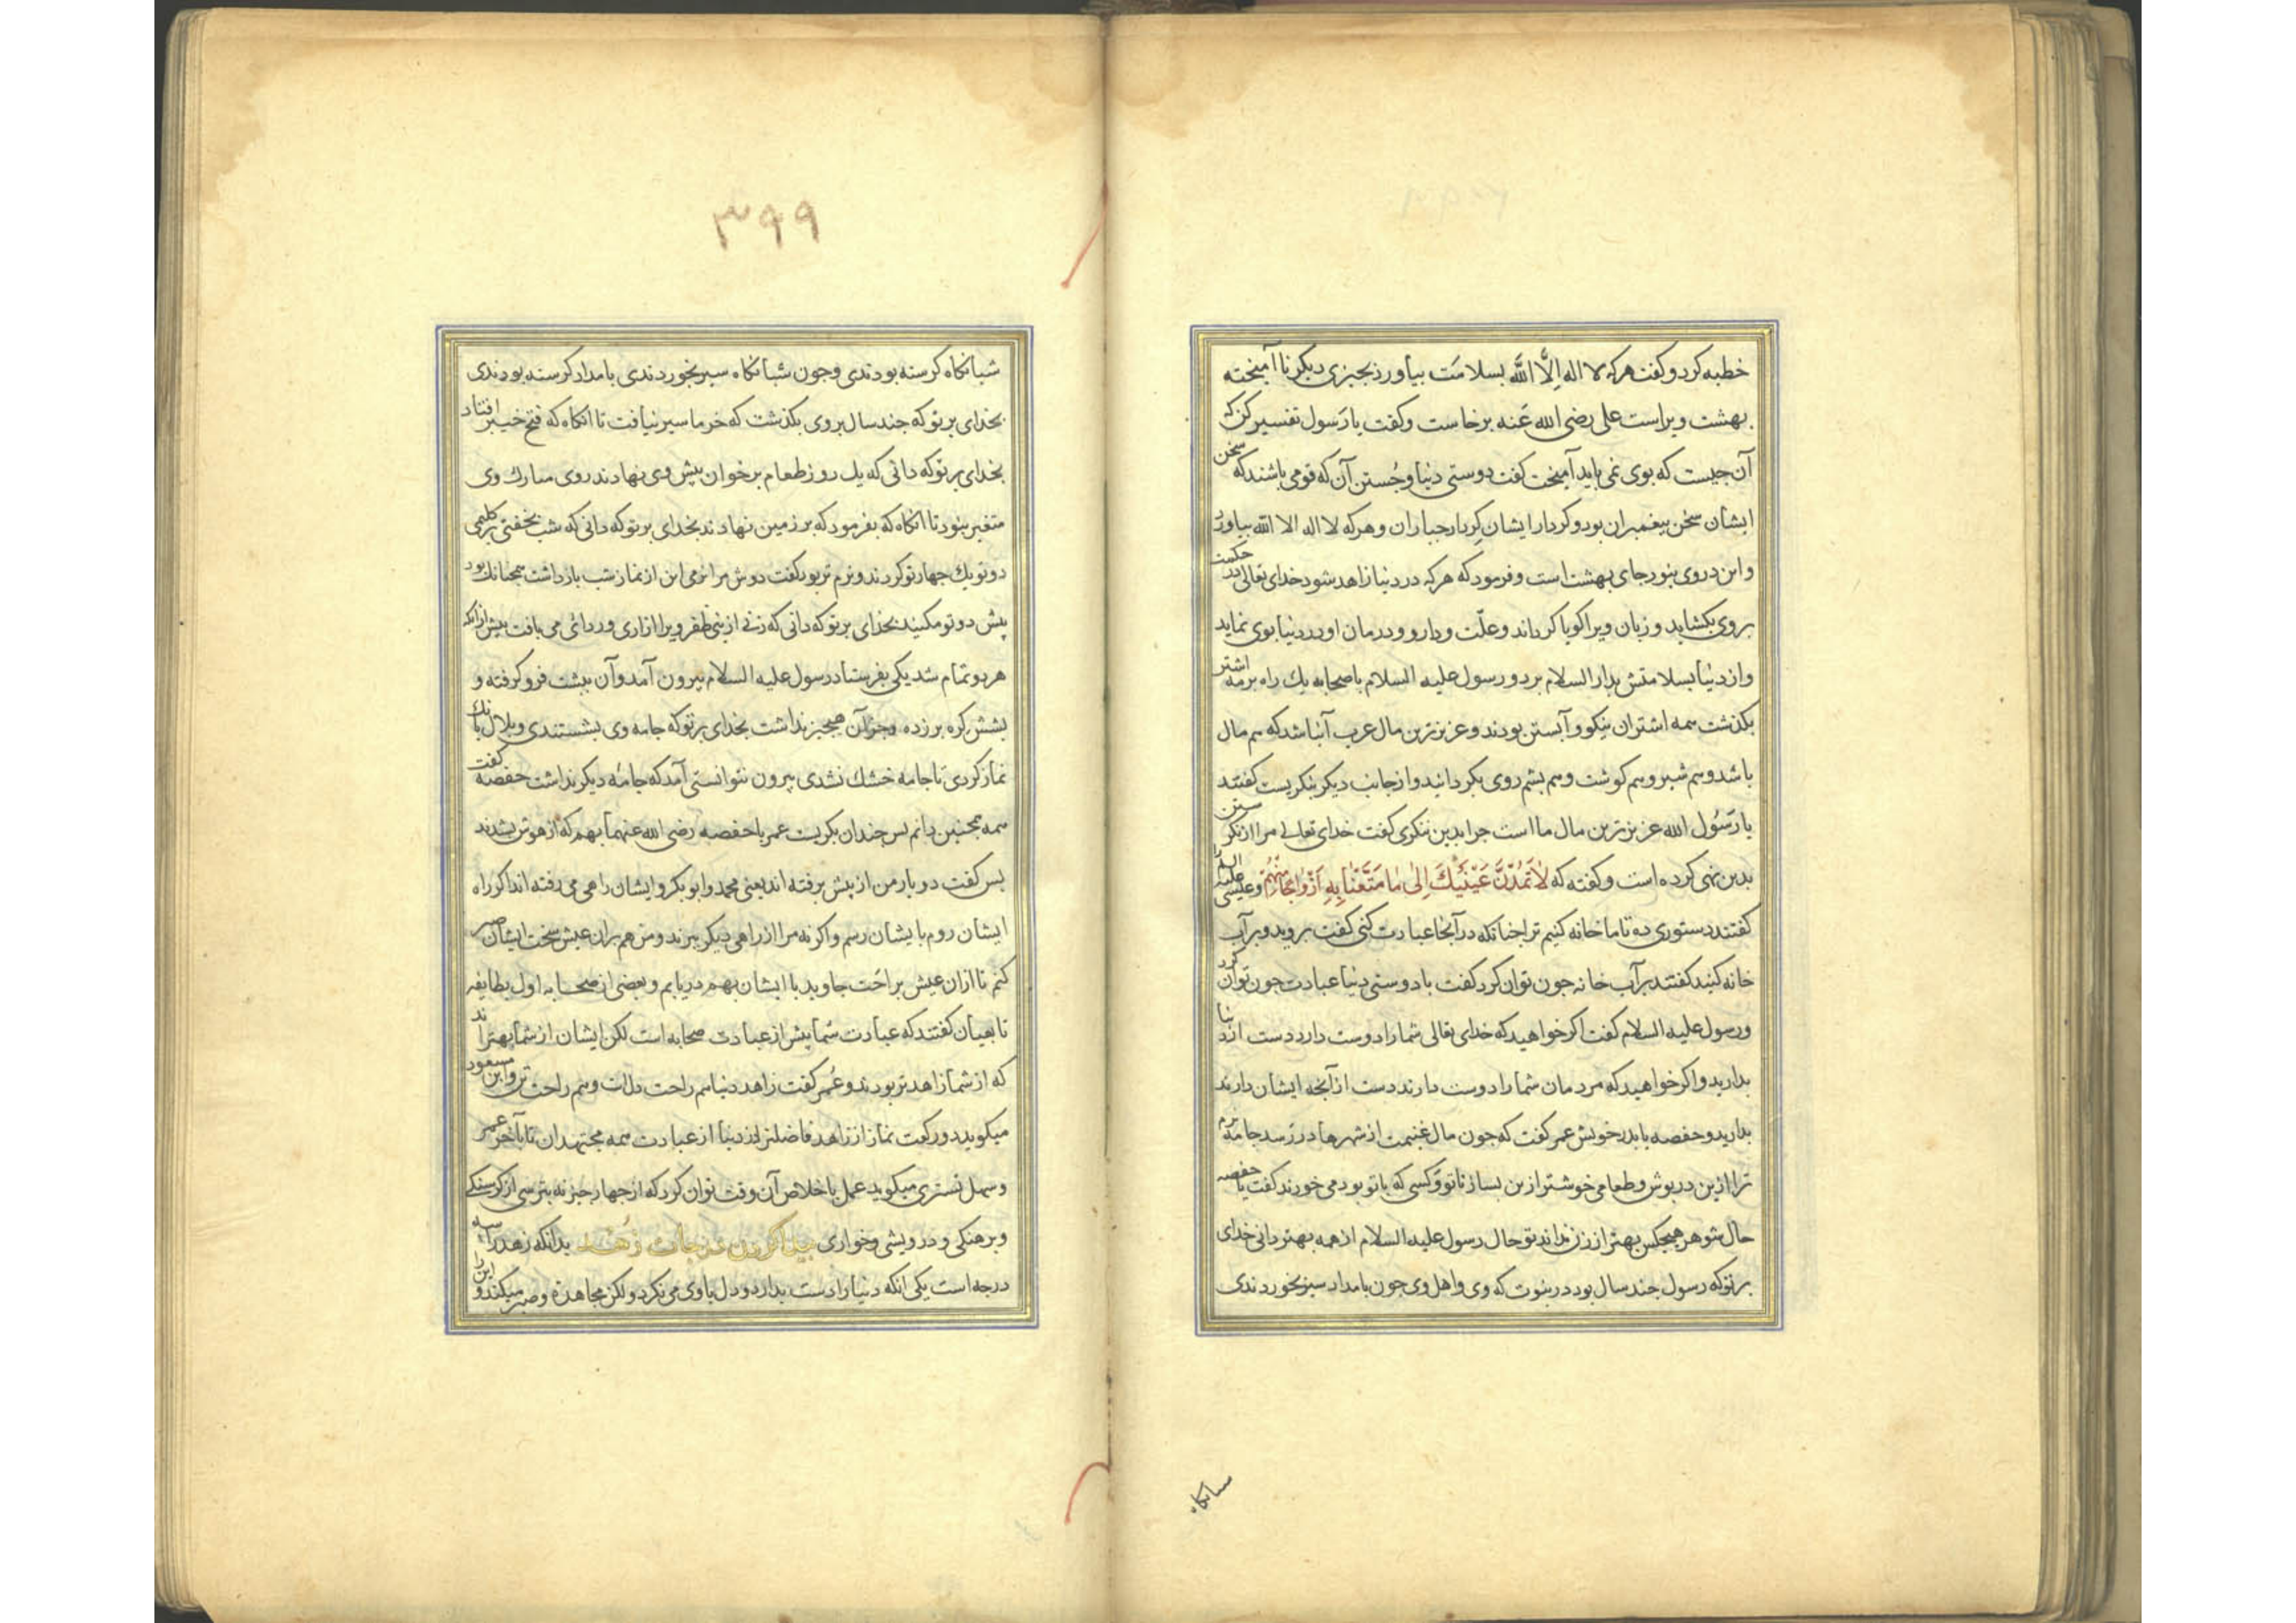 خطبه کرد و کفت هر که لا اله اِلَّا اللَّه بسلامَت بیاورد بجیزی دیکر نا آمیخته
بهشت ویراست علی رضی الله عَنه برخاست و کفت یا رَسول تفسیر کن که
آن جیست که بوی نمی باید آمیخت کفت دوستی دنیا و جُستن آن که قومی باشند که سخن
ایشان سخن بیغمبران بود و کردار ایشان کردار جباران و هر که لا اله الا الله بیاورد
و این در وی نبود جای بهشت است و فرمود که هر که در دنیا زاهد شود خدای تعالی در حکمت
بر وی بکشاید و زبان ویرا کویا کرداند و علّت و دارو و درمان او در دنیا بوی نماید
و از دنیا بسلامتش بدار السلام برد و رسول علیه السلام با صحابه یك راه برمه اشتر
بکذشت همه اشتران نیکو و آبستن بودند و عزیزترین مال عرب آنباشد که هم مال
باشد و هم شیر و هم کوشت و هم بشم روی بکردانید و از جانب دیکر بنکریست کفتند
یا رَسُول الله عزیزترین مال ما است جرا بدین ننکری کفت خدای تعالی مرا از نکرستن
بدین نهی کرده است و کفته که لاٰ تَمُدَّنَّ عَیْنَیْكَ اِلیٰ مٰا مَتَّعْنٰا بِهِ اَزْوٰاجًا مِنْهُمْ و عیسی علیه السلم را
کفتند دستوری ده تا ما خانه کنیم ترا جنانکه در آنجا عبادت کنی کفت بروید و بر آب
خانه کنید کفتند بر آب خانه جون توان کرد کفت با دوستی دنیا عبادت جون توان کرد
و رسول علیه السلام کفت اکر خواهید که خدای تعالی شما را دوست دارد دست از دنیا
بدارید و اکر خواهید که مردمان شما را دوست دارند دست از آنجه ایشان دارند
بدارید و حفصه با بدر خویش عمر کفت که جون مال غنیمت از شهرها در رسد جامه نرم
تر ازین در بوش و طعامی خوشتر ازین بساز تا تو و کسی که با تو بود می خورند کفت یا حفصه
حال شوهر هیجکس بهتر از زن نداند تو حال رسول علیه السلام از همه بهتر دانی خدای
بر تو که رسول جند سال بود در نبوت که وی و اهل وی جون بامداد سیر بخوردندی
شبانکاه
۳۹۹
شبانکاه کرسنه بودندی و جون شبانکاه سیر بخوردندی بامداد کرسنه بودندی
بخدای بر تو که جند سال بر وی بکذشت که خرما سیر نیافت تا انکاه که فتح خیبر افتاد
بخدای بر تو که دانی که یك روز طعام بر خوان پیش وی نهادند روی مبارك وی
متغیر بنود تا انکاه که بفرمود که بر زمین نهادند بخدای بر تو که دانی که شب بخفتی بر کلیمی
دو تو یك جهار تو کردند و نرم تر بود کفت دوش مرا نرمی این از نماز شب بازداشت همجنانك بود
پیش دو تو مکنید بخدای بر تو که دانی که زنی از بنی ظفر ویرا ازاری و ردائی می بافت بیش ازانکه
هر دو تمام شد یکی بفرستاد رسول علیه السلام بیرون آمد و آن ببشت فرو کرفته و
بشش کره بر زده و جز آن هیجیز نداشت بخدای بر تو که جامه وی بشستندی و بلال بانك
نماز کردی تا جامه خشك نشدی بیرون نتوانستی آمد که جامهٔ دیکر نداشت حفصه کفت
همه همجنین دانم بس جندان بکریست عمر با حفصه رضی الله عنهما بهم که از هوش بشدند
بس کفت دو یار من از پیش برفته اند یعنی محمد و ابو بکر و ایشان راهی می رفته اند اکر راه
ایشان روم با یشان رسم و اکر نه مرا از راهی دیکر ببرند و من هم بران عیش سخت ایشان صبر
کنم تا ازان عیش براحَت جاوید با ایشان بهم دریابم و بعضی از صحابه اول بطایفه
تابعیان کفتند که عبادت شما پیش از عبادت صحابه است لکن ایشان از شما بهتراند
که از شما زاهدتر بودند و عُمر کفت زاهد دنیا هم راحت دلات و هم راحت تن و ابن مسعود
میکوید دو رکعت نماز از زاهد فاضلتر از دنیا از عبادت همه مجتهدان تا بآخر عمر
و سهل تستری میکوید عمل با خلاص آن وقت توان کرد که از جهار جیز نه بترسی از کرسنکی
و برهنکی و درویشی و خواری پیدا کردن درجات زُهد بدانکه زهد را سه
درجه است یکی انکه دنیا را دست بدارد و دل با وی می نکرد ولکن مجاهده و صبر میکند و این را